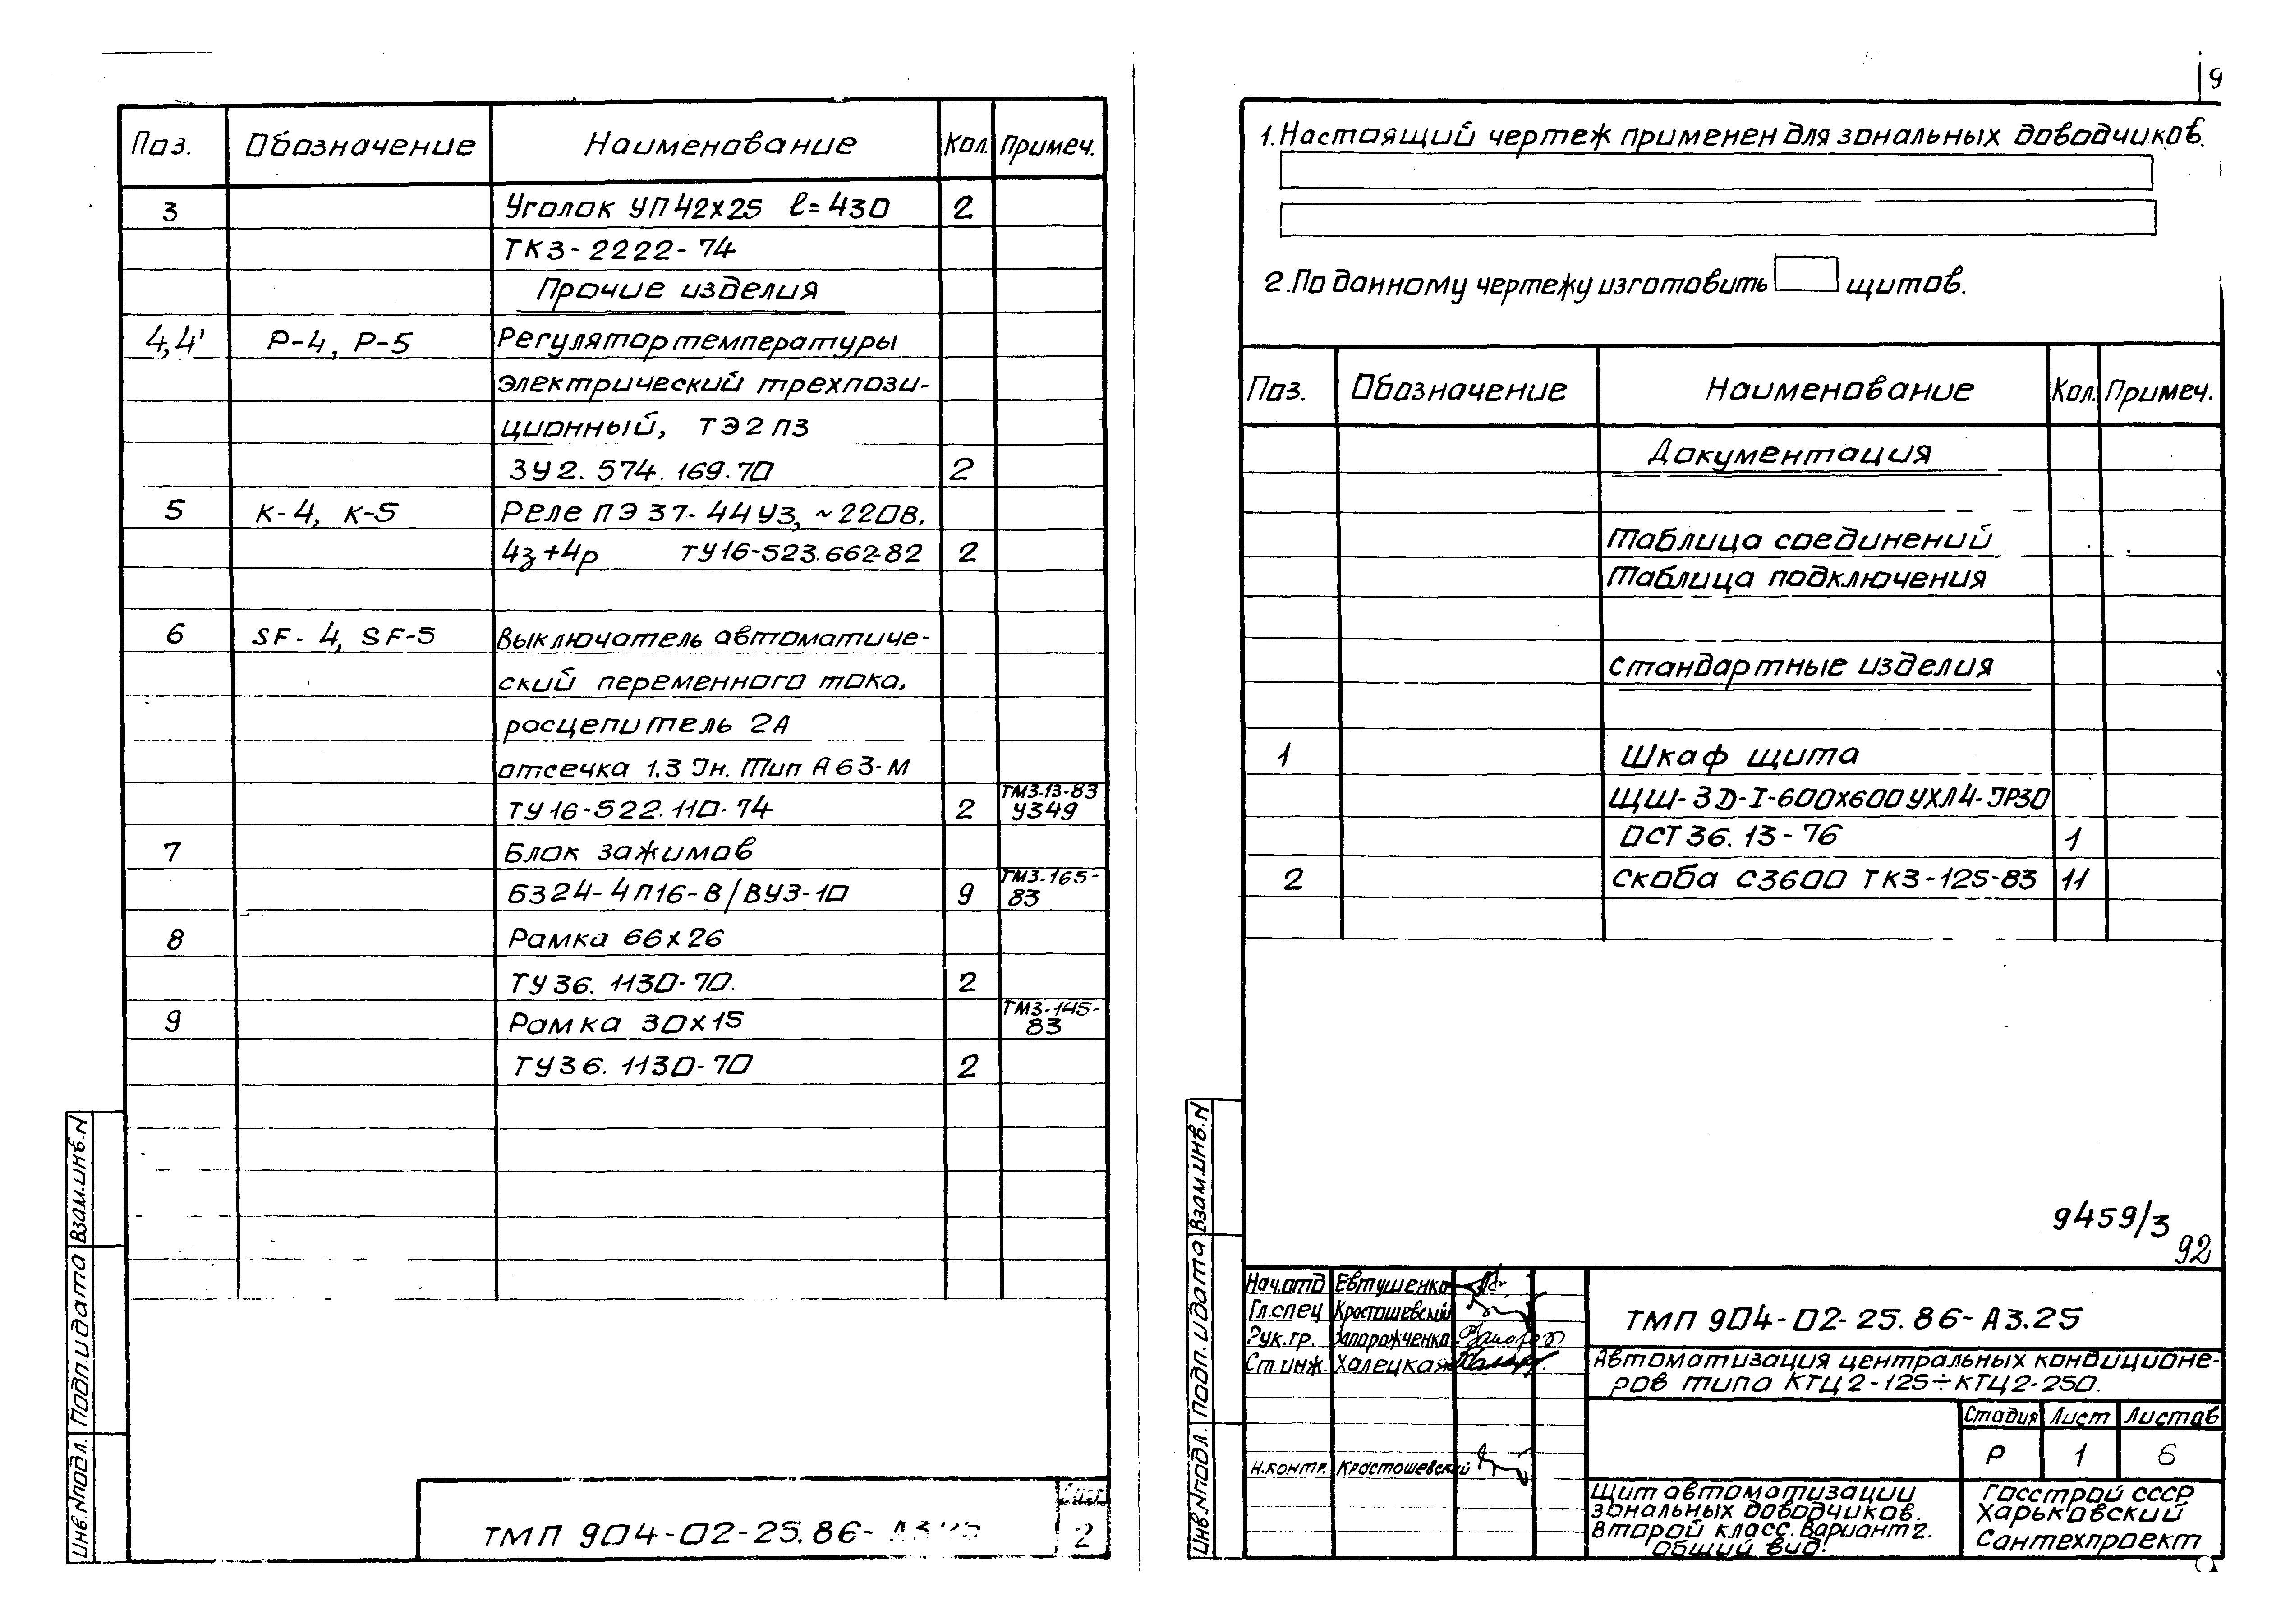 Поз. Обозначение Наименование Кол. Примеч.
3 Уголок УП 42х25 ℓ=430 2
ТК3-2222-74
Прочие изделия
4,4' Р-4, Р-5 Регулятор температуры
электрический трехпози-
ционный, ТЭ2П3
3У2.574.169.70 2
5 К-4, К-5 Реле ПЭ37-44У3, ~220В,
4з+4р ТУ16-523.662-82 2
6 SF-4, SF-5 Выключатель автоматиче-
ский переменного тока,
расцепитель 2А
отсечка 1.3 Iн. Тип А63-М
ТУ16-522.110-74 2 ТМ3-13-83 У349
7 Блок зажимов
Б324-4П16-В/ВУ3-10 9 ТМ3-165-83
8 Рамка 66х26
ТУ36.1130-70. 2
9 Рамка 30х15 ТМ3-145-83
ТУ36.1130-70 2
Инв.Nподл. Подп.и дата Взам.инв.N
ТМП 904-02-25.86-А3.25
Лист
2
9
1. Настоящий чертеж применен для зональных доводчиков.
2. По данному чертежу изготовить щитов.
Поз. Обозначение Наименование Кол. Примеч.
Документация
Таблица соединений
Таблица подключения
Стандартные изделия
1 Шкаф щита
ЩШ-3Д-I-600х600УХЛ4-IР30
ОСТ 36.13-76 1
2 Скоба С3600 ТК3-125-83 11
9459/3
92
Инв.Nподл. Подп.и дата Взам.инв.N
Нач.отд Евтушенко
Гл.спец Красташевский
Рук.гр. Запорожченко
Ст.инж. Халецкая
Н.контр. Красташевский
ТМП 904-02-25.86-А3.25
Автоматизация центральных кондиционе-
ров типа КТЦ2-125÷КТЦ2-250.
Стадия Лист Листов
Р 1 6
Щит автоматизации
зональных доводчиков.
Второй класс. Вариант 2.
Общий вид.
Госстрой СССР
Харьковский
Сантехпроект